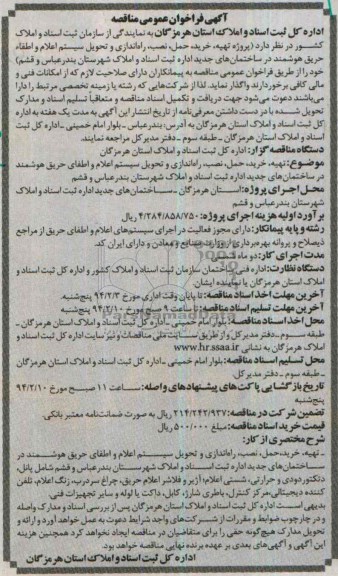 آگهی فراخوان عمومی مناقصه
اداره کل ثبت اسناد و املاک استان هرمزگان به نمایندگی از سازمان ثبت اسناد و املاک
کشور در نظر دارد (پروژه تهیه، خرید، حمل، نصب، راه‌اندازی و تحویل سیستم اعلام و اطفاء
حریق هوشمند در ساختمان‌های جدید اداره ثبت اسناد و املاک شهرستان بندرعباس و قشم)
خود را از طریق فراخوان عمومی مناقصه به پیمانکاران دارای صلاحیت لازم که از امکانات فنی و
مالی کافی برخوردارند واگذار نماید. لذا از شرکت‌هایی که رشته یا زمینه تخصصی مرتبط را دارا
می‌باشند دعوت می‌شود جهت دریافت و تکمیل اسناد مناقصه و متعاقباً تسلیم اسناد و مدارک
تحویل شده با در دست داشتن معرفی‌نامه از تاریخ انتشار این آگهی به مدت یک هفته به اداره
کل ثبت اسناد و املاک استان هرمزگان به آدرس: بندرعباس ـ بلوار امام خمینی ـ اداره کل ثبت
اسناد و املاک استان هرمزگان ـ طبقه سوم ـ دفتر مدیر کل مراجعه نمایند.
دستگاه مناقصه گزار: اداره کل ثبت اسناد و املاک استان هرمزگان
موضوع: تهیه، خرید، حمل، نصب، راه‌اندازی و تحویل سیستم اعلام و اطفای حریق هوشمند
در ساختمان‌های جدید اداره ثبت اسناد و املاک شهرستان بندرعباس و قشم
محل اجرای پروژه: استان هرمزگان ـ ساختمان‌های جدید اداره ثبت اسناد و املاک
شهرستان بندرعباس و قشم
برآورد اولیه هزینه اجرای پروژه: ۴/۲۸۴/۸۵۸/۷۵۰ ریال
رشته و پایه پیمانکار: دارای مجوز فعالیت در اجرای سیستم‌های اعلام و اطفای حریق از مراجع
ذیصلاح و پروانه بهره‌برداری از وزارت صنایع و معادن و دارای ایران کد.
مدت اجرای کار: دو ماه
دستگاه نظارت: اداره فنی ساختمان سازمان ثبت اسناد و املاک کشور و اداره کل ثبت اسناد و
املاک استان هرمزگان یا نماینده ایشان
آخرین مهلت اخذ اسناد مناقصه: تا پایان وقت اداری مورخ ۹۴/۲/۳ پنج‌شنبه.
آخرین مهلت تسلیم اسناد مناقصه: تا ساعت ۹ صبح مورخ ۹۴/۲/۱۰ پنج‌شنبه
محل اخذ اسناد مناقصه: بلوار امام خمینی ـ اداره کل ثبت اسناد و املاک استان هرمزگان ـ
طبقه سوم ـ دفتر مدیر کل و از طریق سایت ملی مناقصات و نیز سایت اداره کل ثبت اسناد و
املاک هرمزگان به نشانی www.hr.ssaa.ir
محل تسلیم اسناد مناقصه: بلوار امام خمینی ـ اداره کل ثبت اسناد و املاک استان هرمزگان
ـ طبقه سوم ـ دفتر مدیر کل.
تاریخ بازگشایی پاکت‌های پیشنهادهای واصله: ساعت ۱۱ صبح مورخ ۹۴/۲/۱۰
پنج‌شنبه
تضمین شرکت در مناقصه: ۲۱۴/۲۴۲/۹۳۷ ریال به صورت ضمانت‌نامه معتبر بانکی.
قیمت خرید اسناد مناقصه: مبلغ ۵۰۰/۰۰۰ ریال
شرح مختصری از کار:
ـ تهیه، خرید، حمل، نصب، راه‌اندازی و تحویل سیستم اعلام و اطفای حریق هوشمند در
ساختمان‌های جدید اداره ثبت اسناد و املاک شهرستان بندرعباس و قشم شامل پانل،
دتکتور دودی و حرارتی، شستی اعلام؛ آژیر و فلاشر اعلام حریق، چراغ سردرب، زنگ اعلام، تلفن
کننده دیجیتالی مرکز کنترل، باطری شارژ، کابل، داکت یا لوله و سایر تجهیزات فنی.
بدیهی است اداره کل ثبت اسناد و املاک استان هرمزگان پس از بررسی اسناد و مدارک واصله
و در چارچوب ضوابط و مقررات از شرکت‌های واجد شرایط دعوت به عمل خواهد آورد و ارائه و
تحویل مدارک هیچ‌گونه حقی را برای متقاضیان در مناقصه ایجاد نخواهد کرد همچنین هزینه
این آگهی و آگهی‌های بعدی بر عهده برنده نهایی مناقصه خواهد بود.
اداره کل ثبت اسناد و املاک استان هرمزگان